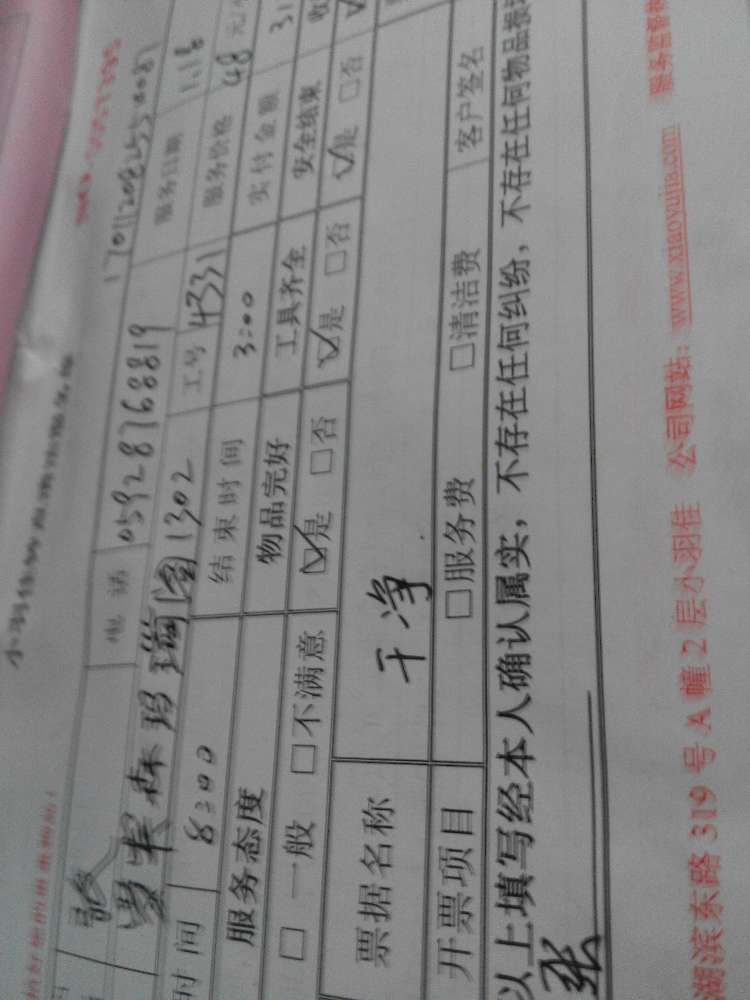 17011208255 0087
电话 05928768819 服务日期 1.18
1302 工号 4331 服务价格 48 元/
时间 8:00 结束时间 3:00 实付金额 31
服务态度 物品完好 工具齐全 安全结束 收
□ 一般 □不满意 ☑是 □否 ☑是 □否 ☑是 □否
票据名称 干净
开票项目 □服务费 □清洁费 客户签名
以上填写经本人确认属实，不存在任何纠纷，不存在任何物品损
张
湖滨东路 319 号 A 幢 2 层小羽佳 公司网站：www.xiaoyujia.com 服务监督